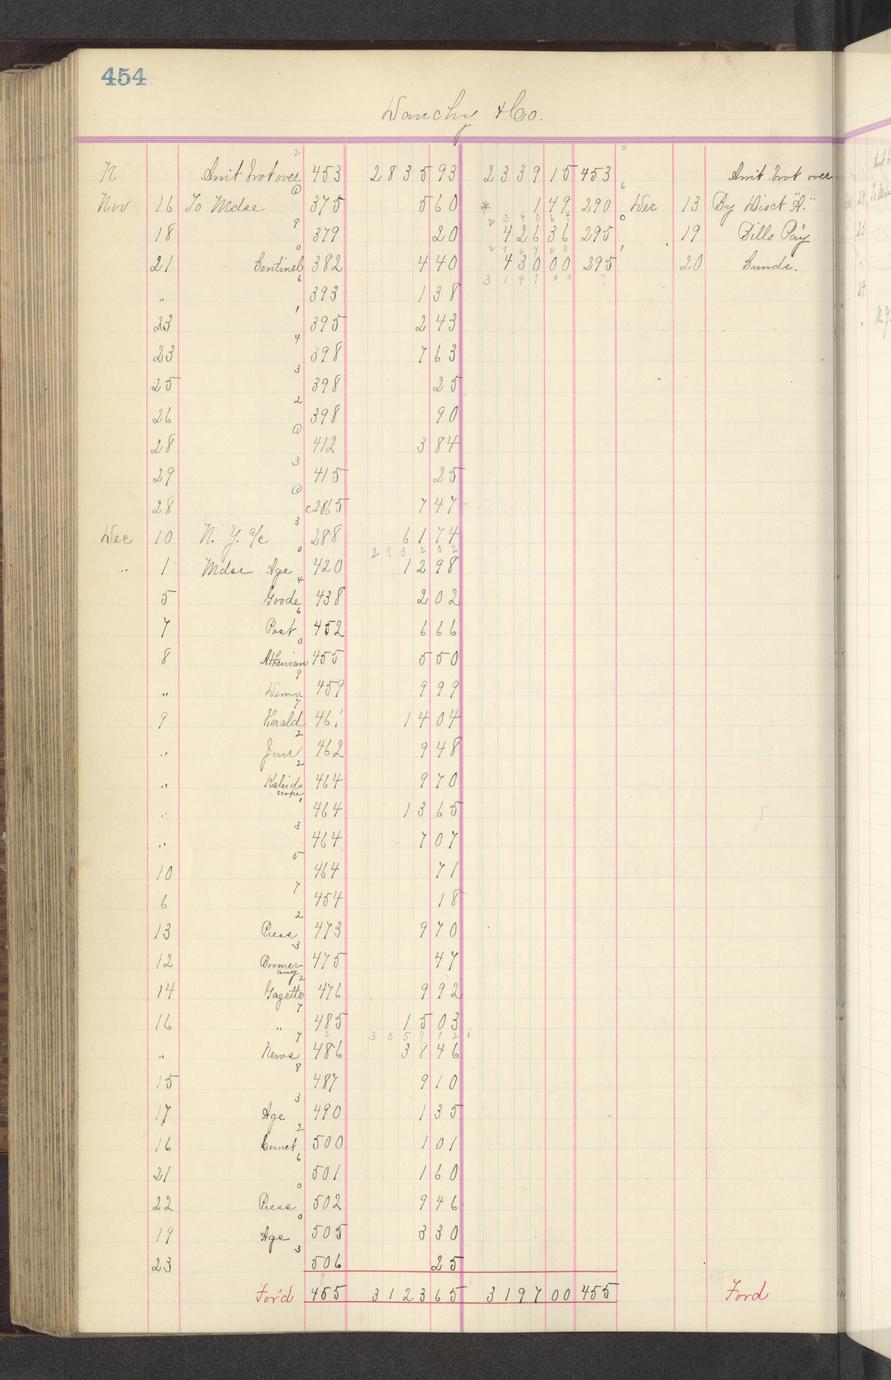 454
Dauchy & Co.
N Amt brot over 453 2835 93 2339 15 453 Amt brot over
Nov 16 To Mdse 375 5 60 * 1 49 290 Dec 13 By Disct "A."
18 379 20 426 36 295 19 Bills Pay
21 Sentinel 382 4 40 430 00 295 20 Sunds.
" 393 1 38
23 395 2 43
23 398 7 63
25 398 25
26 398 90
28 412 3 84
29 415 25
28 7 47
Dec 10 N. Y. a/c 288 61 74
2932 02
" 1 Mdse Age 420 12 98
5 Grode 438 2 02
7 Post 452 6 66
8 Athenian 455 5 50
" Demo. 459 9 99
9 Herald 461 14 04
" Jour 462 9 48
" Kaleidoscope 464 9 70
" 464 13 65
" 464 7 07
10 464 71
6 454 18
13 Press 473 9 70
12 Boomerang 475 47
14 Gazette 476 9 92
16 " 485 15 03
" News 486 31 46
15 487 9 10
17 Age 490 1 35
16 Comet 500 1 01
21 501 1 60
22 Press 502 9 46
19 Age 505 3 30
23 506 25
For'd 455 3123 65 3197 00 455 Ford